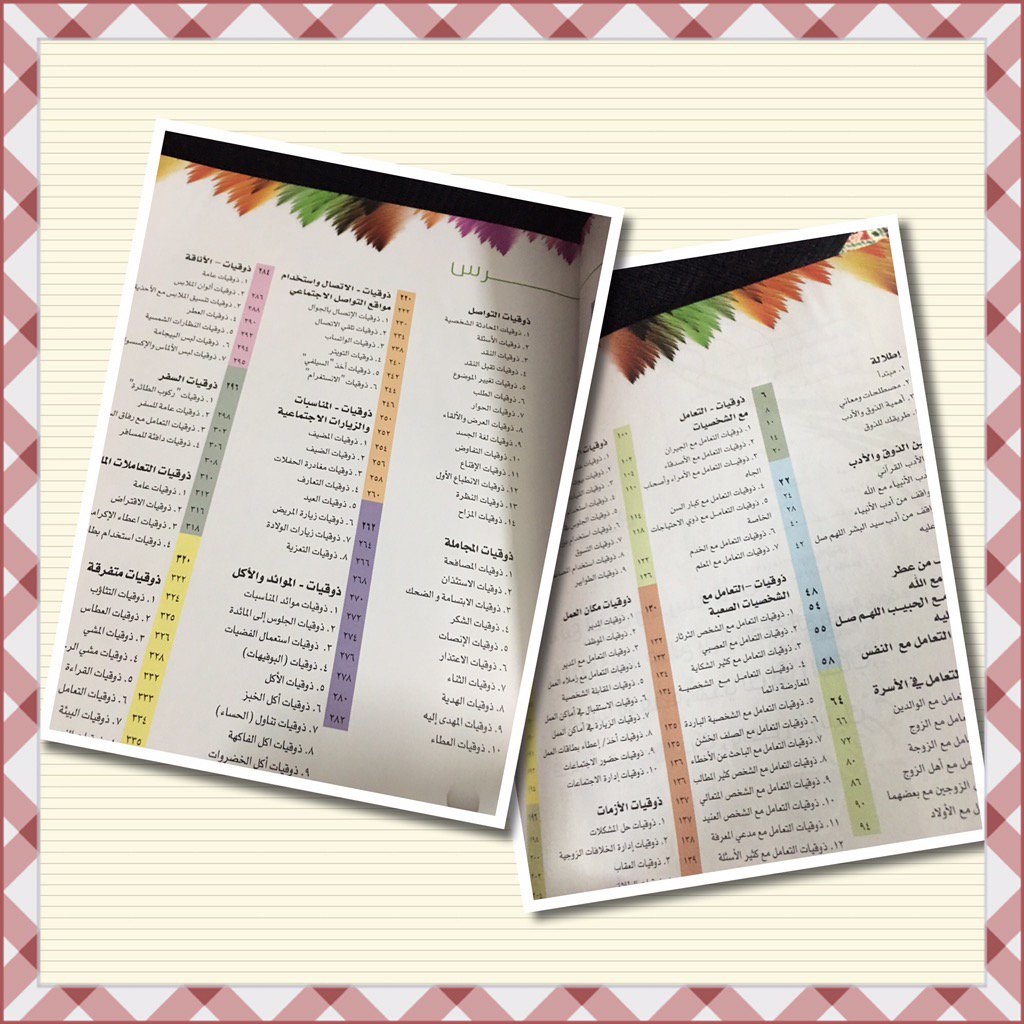 ـرس
ذوقيات التواصل
١. ذوقيات المحادثة الشخصية
٢. ذوقيات الأسئلة
٣. ذوقيات النقد
٤. ذوقيات تقبل النقد
٥. ذوقيات تغيير الموضوع
٦. ذوقيات الطلب
٧. ذوقيات الحوار
٨. ذوقيات العرض والألقاء
٩. ذوقيات لغة الجسد
١٠. ذوقيات التفاوض
١١. ذوقيات الإقناع
١٢. ذوقيات الانطباع الأول
١٣. ذوقيات النظرة
١٤. ذوقيات المزاح
ذوقيات المجاملة
١. ذوقيات المصافحة
٢. ذوقيات الاستئذان
٣. ذوقيات الابتسامة و الضحك
٤. ذوقيات الشكر
٥. ذوقيات الإنصات
٦. ذوقيات الاعتذار
٧. ذوقيات الثناء
٨. ذوقيات الهدية
٩. ذوقيات المهدى إليه
١٠. ذوقيات العطاء
٢٣٠
٢٣٤
٢٣٨
٢٤٠
٢٤٢
٢٤٤
٢٤٦
٢٥٠
٢٥٢
٢٥٤
٢٥٦
٢٥٨
٢٦٠
٢٦٢
٢٦٤
٢٦٦
٢٦٨
٢٧٠
٢٧٢
٢٧٤
٢٧٦
٢٧٨
٢٨٠
٢٨٢
ذوقيات - الاتصال واستخدام
مواقع التواصل الاجتماعي
١. ذوقيات الإتصال بالجوال
٢. ذوقيات تلقي الاتصال
٣. ذوقيات الواتساب
٤. ذوقيات التويتر
٥. ذوقيات أخذ "السيلفي"
٦. ذوقيات "الانستغرام"
ذوقيات - المناسبات
والزيارات الاجتماعية
١. ذوقيات المضيف
٢. ذوقيات الضيف
٣. ذوقيات مغادرة الحفلات
٤. ذوقيات التعارف
٥. ذوقيات العيد
٦. ذوقيات زيارة المريض
٧. ذوقيات زيارات الولادة
٨. ذوقيات التعزية
ذوقيات - الموائد والأكل
١. ذوقيات موائد المناسبات
٢. ذوقيات الجلوس إلى المائدة
٣. ذوقيات استعمال الفضيات
٤. ذوقيات (البوفيهات)
٥. ذوقيات الأكل
٦. ذوقيات أكل الخبز
٧. ذوقيات تناول (الحساء)
٨. ذوقيات اكل الفاكهة
٩. ذوقيات أكل الخضروات
٢٨٤
٢٨٦
٢٨٨
٢٩٠
٢٩٢
٢٩٤
٢٩٥
٢٩٦
٢٩٨
٣٠٢
٣٠٦
٣٠٨
٣١٠
٣١٢
٣١٦
٣١٨
٣٢٠
٣٢٢
٣٢٤
٣٢٥
٣٢٦
٣٢٨
٣٣٢
٣٣٣
٣٣٤
٣٣٥
ذوقيات - الأناقة
١. ذوقيات عامة
٢. ذوقيات ألوان الملابس
٣. ذوقيات تنسيق الملابس مع الأحذية
٤. ذوقيات العطر
٥. ذوقيات النظارات الشمسية
٦. ذوقيات لبس البيجامة
٧. ذوقيات لبس الألماس والإكسسو
ذوقيات السفر
١. ذوقيات "ركوب الطائرة"
٢. ذوقيات عامة للسفر
٣. ذوقيات التعامل مع رفاق ال
٤. ذوقيات دافئة للمسافر
ذوقيات التعاملات الما
١. ذوقيات عامة
٢. ذوقيات الاقتراض
٣. ذوقيات اعطاء الإكرامـ
٤. ذوقيات استخدام بطا
ذوقيات متفرقة
١. ذوقيات التثاؤب
٢. ذوقيات العطاس
٣. ذوقيات المشي
٤. ذوقيات مشي الر
٥. ذوقيات القراءة
٦. ذوقيات التعامل
٧. ذوقيات البيئة
إطلالة
١. مبتدأ
٢. مصطلحات ومعاني
٣. أهمية الذوق والأدب
٤. طريقك للذوق
ين الذوق والأدب
دب القرآني
دب الأنبياء مع الله
واقف من أدب الأنبياء
اقف من أدب سيد البشر اللهم صل
عليه
من عطر
مع الله
مع الحبيب اللهم صل
ليه
التعامل مع النفس
تعامل في الأسرة
امل مع الوالدين
امل مع الزوج
امل مع الزوجة
مل مع أهل الزوج
الزوجين مع بعضهما
ل مع الأولاد
٦
٨
١٤
٢٠
٢٢
٢٤
٢٨
٤٠
٤٢
٤٨
٥٤
٥٥
٥٨
٦٤
٦٦
٧٢
٨٠
٨٦
٩٠
٩٤
ذوقيات - التعامل
مع الشخصيات
١. ذوقيات التعامل مع الجيران
٢. ذوقيات التعامل مع الأصدقاء
٣. ذوقيات التعامل مع الأمراء وأصحاب
الجاه
٤. ذوقيات التعامل مع كبار السن
٥. ذوقيات التعامل مع ذوي الاحتياجات
الخاصة
٦. ذوقيات التعامل مع الخدم
٧. ذوقيات التعامل مع المعلم
ذوقيات - التعامل مع
الشخصيات الصعبة
١. ذوقيات التعامل مع الشخص الثرثار
٢. ذوقيات التعامل مع العصبي
٣. ذوقيات التعامل مع كثير الشكاية
٤. ذوقيات التعامل مع صعب الشخصية
المعارضة دائما
٥. ذوقيات التعامل مع الشخصية الباردة
٦. ذوقيات التعامل مع الصلف الخشن
٧. ذوقيات التعامل مع الباحث عن الأخطاء
٨. ذوقيات التعامل مع الشخص كثير المطالب
٩. ذوقيات التعامل مع الشخص المتعالي
١٠. ذوقيات التعامل مع الشخص العنيد
١١. ذوقيات التعامل مع مدعي المعرفة
١٢. ذوقيات التعامل مع كثير الأسئلة
١٠٠
١٠٥
١١٠
١١٤
١١٨
١٢٢
١٢٦
١٣٠
١٣٢
١٣٣
١٣٤
١٣٤
١٣٥
١٣٦
١٣٦
١٣٧
١٣٧
١٣٨
١٣٩
ذوقيات مكان العمل
١. ذوقيات المدير
٢. ذوقيات الموظف
٣. ذوقيات التعامل مع المدير
٤. ذوقيات التعامل مع زملاء العمل
٥. ذوقيات المقابلة الشخصية
٦. ذوقيات الاستقبال في أماكن العمل
٧. ذوقيات الزيارة في أماكن العمل
٨. ذوقيات أخذ/ إعطاء بطاقات العمل
٩. ذوقيات حضور الاجتماعات
١٠. ذوقيات إدارة الاجتماعات
ذوقيات الأزمات
١. ذوقيات حل المشكلات
٢. ذوقيات إدارة الخلافات الزوجية
٣. ذوقيات العقاب